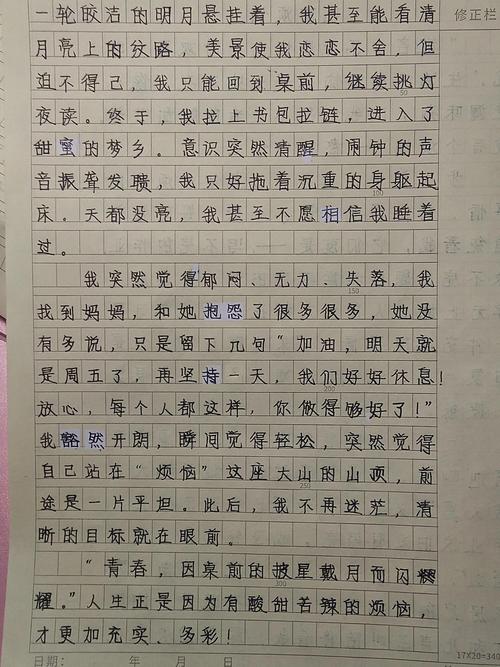 一轮皎洁的明月悬挂着，我甚至能看清
修正栏
月亮上的纹路，美景使我恋恋不舍，但
迫不得已，我只能回到桌前，继续挑灯
50
夜读。终于，我拉上书包拉链，进入了
甜蜜的梦乡。意识突然清醒，闹钟的声
音振聋发聩，我只好拖着沉重的身躯起
100
床。天都没亮，我甚至不愿相信我睡着
过。
我突然觉得郁闷、无力、失落，我
150
找到妈妈，和她抱怨了很多很多，她没
有多说，只是留下几句“加油，明天就
是周五了，再坚持一天，我们好好休息！
200
放心，每个人都这样，你做得够好了！”
我豁然开朗，瞬间觉得轻松，突然觉得
自己站在“烦恼”这座大山的山顶，前
250
途是一片平坦。此后，我不再迷茫，清
晰的目标就在眼前。
“青春，因桌前的披星戴月而闪
300
耀。”人生正是因为有酸甜苦辣的烦恼，
才更加充实、多彩！
日期： 年 月 日
17X20=340